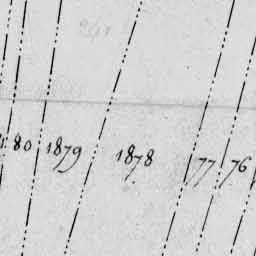 80 1879 1878 77 76